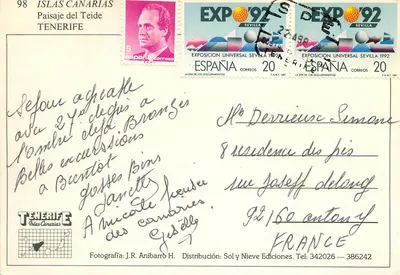 98 ISLAS CANARIAS
Paisaje del Teide
TENERIFE
5
ESPAÑA CORREOS
EXPO'92
SEVILLA
EXPOSICION UNIVERSAL SEVILLA 1992
ESPAÑA CORREOS 20
EXPO'92
SEVILLA
EXPOSICION UNIVERSAL SEVILLA 1992
ESPAÑA CORREOS 20
Séjour agréable
avec 27 degrés à
l'ombre déjà Bronzés
Belles excursions
à Bientôt
gosses Bises
Janette
A Amicale pensée
des canaries
Gisèle
Me Derrieusc Simone
8 residence des pis
rue Joseff delong
92160 antony
FRANCE
TENERIFE
Islas Canarias
Fotografía: J.R. Anibarro H. Distribución: Sol y Nieve Ediciones. Tel: 342026 - 386242